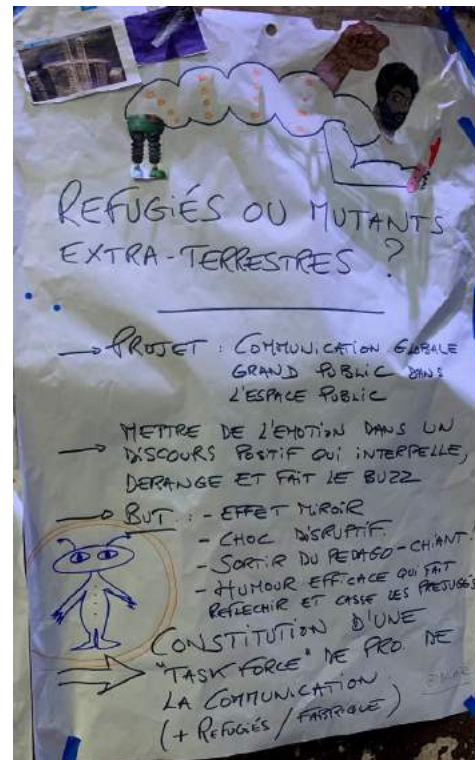 REFUGIÉS OU MUTANTS
EXTRA-TERRESTRES ?
→ PROJET : COMMUNICATION GLOBALE
GRAND PUBLIC DANS
L'ESPACE PUBLIC
→ METTRE DE L'EMOTION DANS UN
DISCOURS POSITIF QUI INTERPELLE,
DERANGE ET FAIT LE BUZZ
→ BUT : - EFFET MIROIR
- CHOC DISRUPTIF.
- SORTIR DU PEDAGO-CHIANT.
- HUMOUR EFFICACE QUI FAIT
REFLECHIR ET CASSE LES PREJUGÉS
CONSTITUTION D'UNE
"TASK FORCE" DE PRO. DE
LA COMMUNICATION
(+ REFUGIÉS / FABRIQUE)